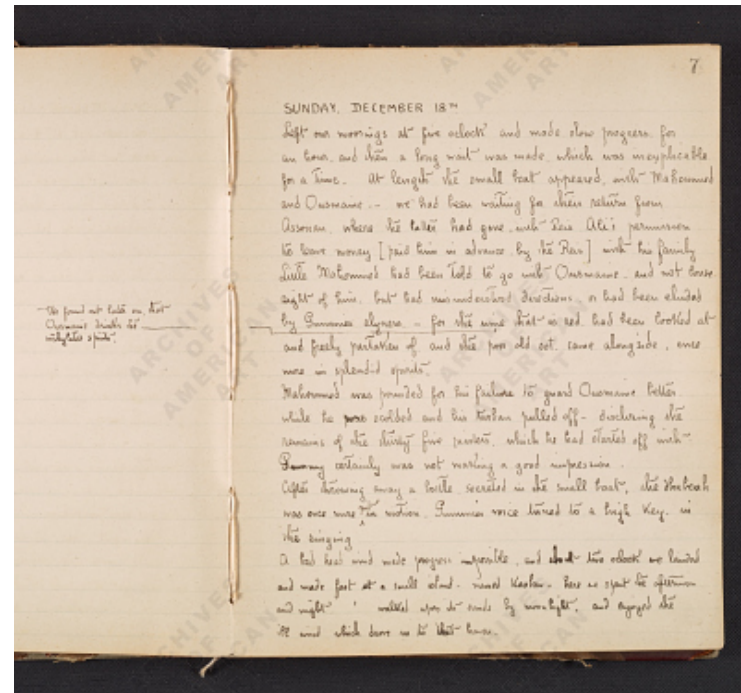 7
SUNDAY. DECEMBER 18TH
Left our moorings at five oclock and made slow progress for
an hour, and then a long wait was made, which was inexplicable
for a time. At length the small boat appeared, with Mahommed
and Ousmaine. — we had been waiting for their return from
Assouan, where the latter had gone, with Reis Ali's permission
to leave money [paid him in advance by the Reis] with his family
Little Mahommed had been told to go with Ousmaine, and not loose
sight of him, but had misunderstood directions, or had been eluded
by — for the wine that is red had been looked at
and freely partaken of and the poor old sot, came alongside, once
more in splendid spirits.
Mahommed was pounded for his failure to guard Ousmaine better
while he was scolded and his turban pulled off - disclosing the
remains of the thirty five , which he had started off with.
certainly was not making a good impression.
After throwing away a bottle secreted in the small boat, the dhabeah
was once more in motion. voice tuned to a high key, in
the singing
A bad head wind made progress impossible, and about two oclock we landed
and made fast at a small island - named - here we spent the afternoon
and night. I walked upon the sands by moonlight, and enjoyed the
wind which bore us to this haven.
We found out later on, that
Ousmaine drinks the
methylated spirits.
ARCHIVES
OF
AMERICAN
ART